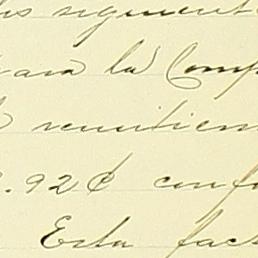 los siguient
para la Comp
remitiem
.92¢ conf
Esta fact